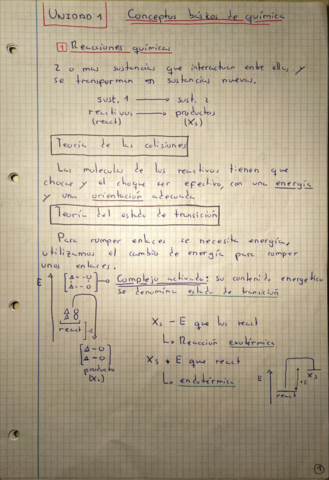 UNIDAD 1   Conceptos básicos de química
1 Reacciones químicas
2 o mas sustancias que interactuan entre ellas, y
se transforman en sustancias nuevas.
sust. 1 → sust. 2
reactivos → productos
(react)   (X₂)
Teoría de las colisiones
Las moleculas de los reactivos tienen que
chocar y el choque ser efectivo, con una energía
y una orientación adecuada
Teoría del estado de transición
Para romper enlaces se necesita energía,
utilizamos el cambio de energía para romper
unos enlaces.
E
Complejo activado: su contenido energetico
se denomina estado de transición
react
producto
(X₂)
X₂ - E que los react
↳ Reacción exotérmica
X₃ + E que react
↳ endotérmica
E
react
+E
X₃
1